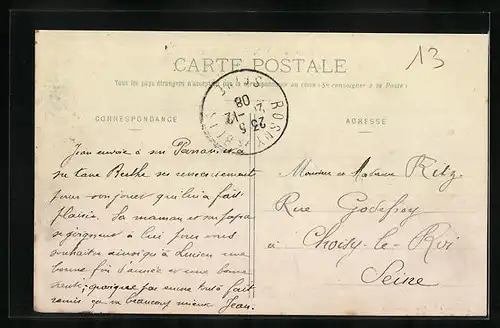 13
CARTE POSTALE
Tous les pays étrangers n'acceptent pas la correspondance au recto (Se renseigner à la Poste)
ROSNY
SEINE
23-12
08
CORRESPONDANCE
ADRESSE
Jean envoie à son Parrain et à
sa Tante Berthe ses remerciements
pour son jouet qui lui a fait
plaisir. Sa maman et son papa
se joignent à lui pour vous
souhaiter ainsi qu'à Lucien une
bonne fin d'année et une bonne
santé; quoique pas encore tout à fait
remis ça va beaucoup mieux Jean.
Monsieur et Madame Ritz
Rue Godefroy
à Choisy-le-Roi
Seine